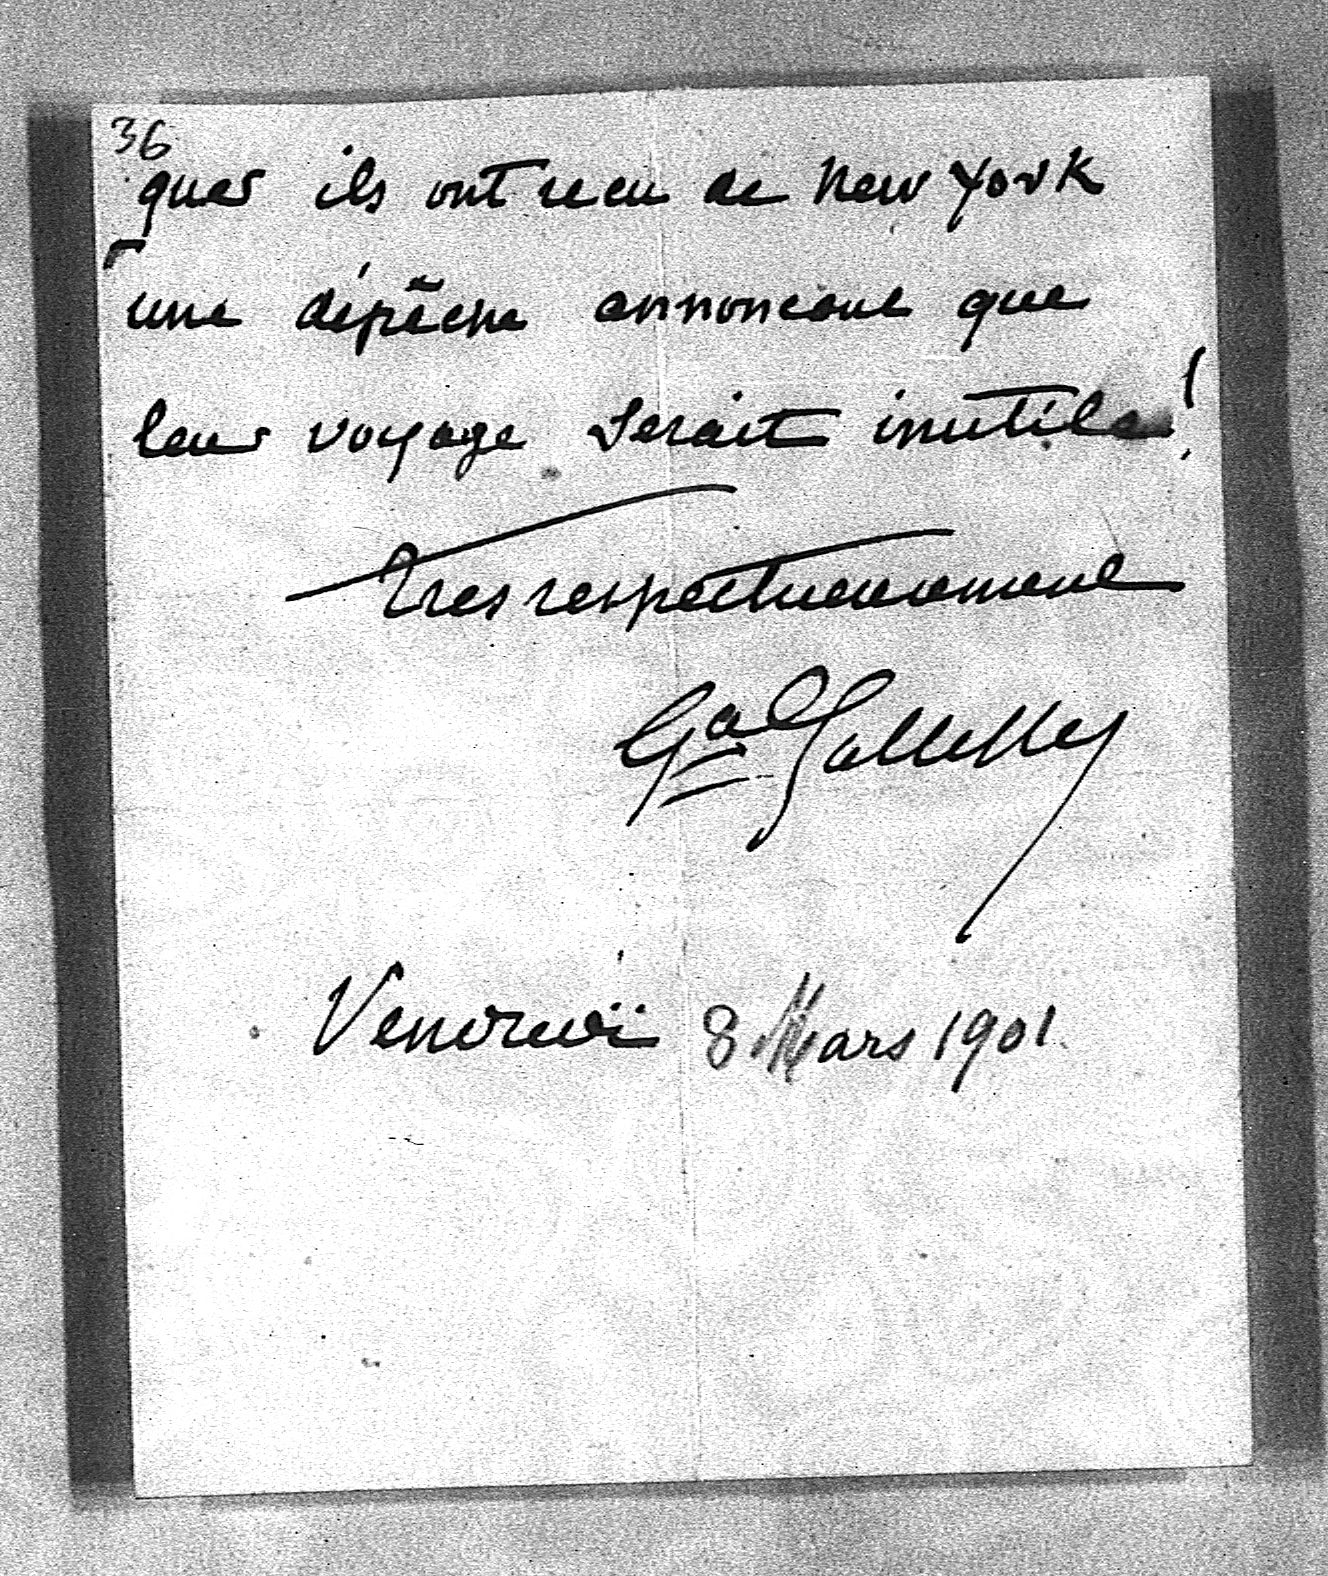 36
ques ils ont recu de New York
une dépêche annoncant que
leur voyage serait inutile!
Tres respectueusement
Gal Gallieni
Vendredi 8 Mars 1901